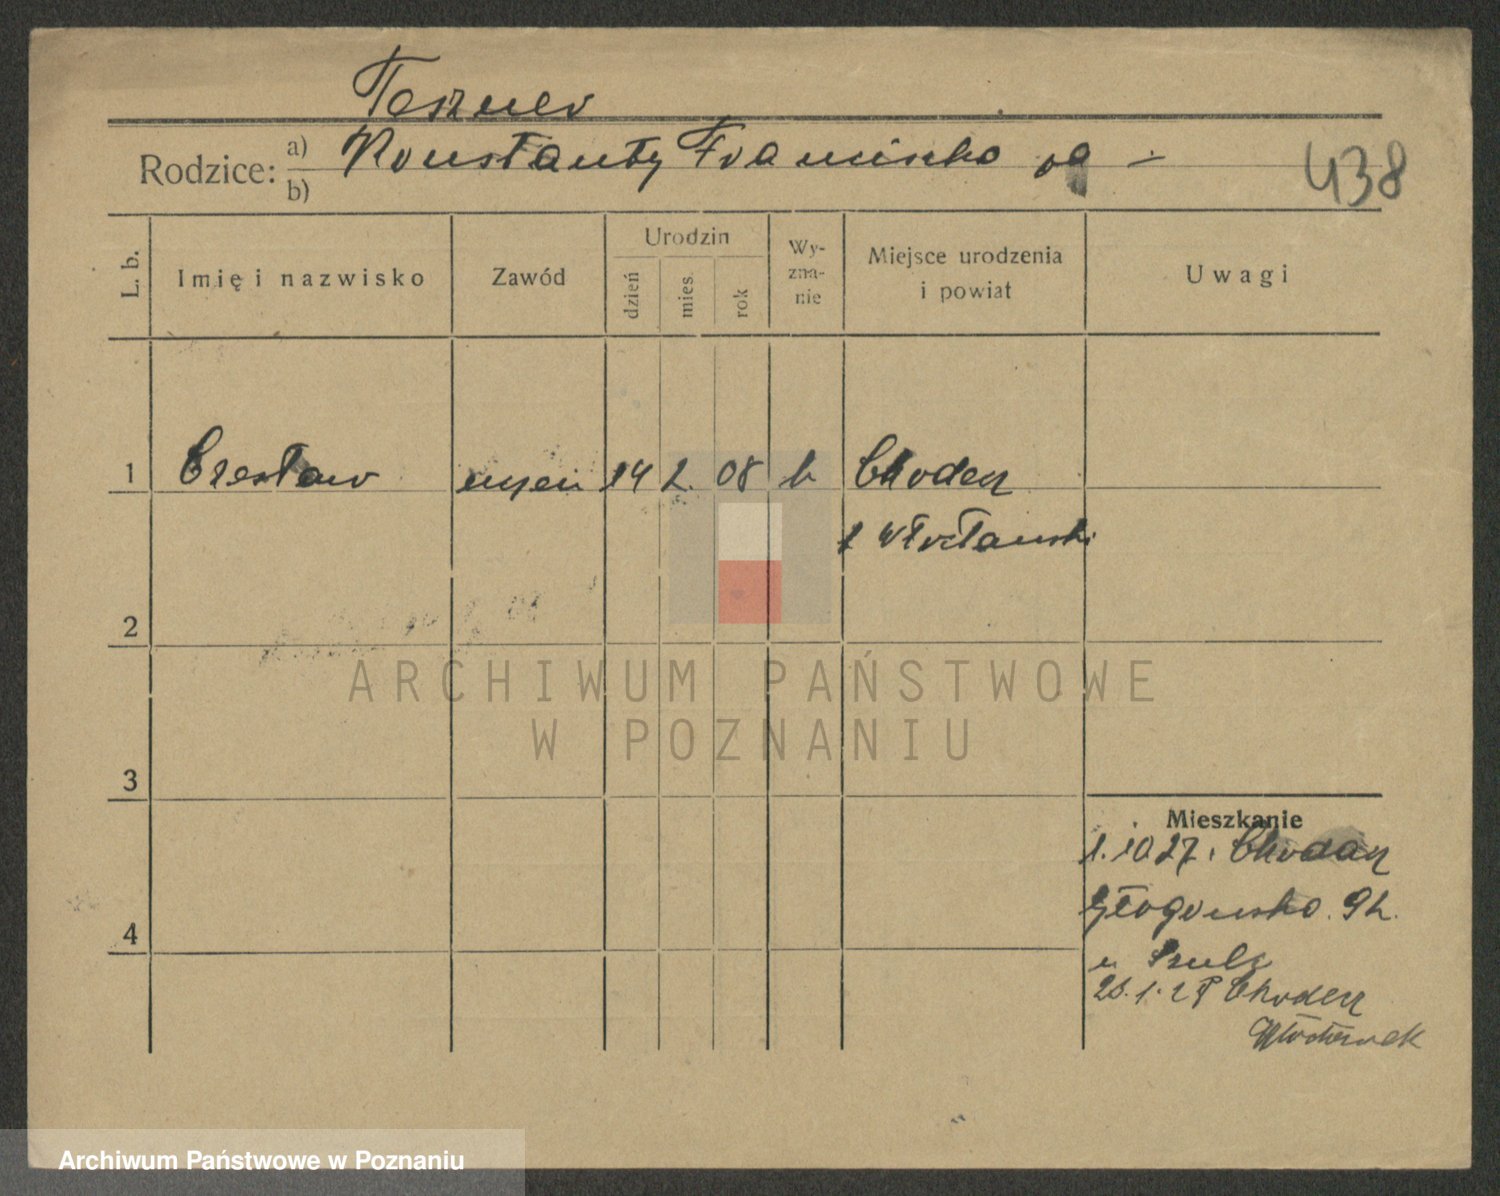 Teszner
Rodzice: a) Konstanty Franciszka
b)
438
L. b.
Imię i nazwisko
Zawód
Urodzin
dzień
mies.
rok
Wy-
zna-
nie
Miejsce urodzenia
i powiat
Uwagi
1 Czesław uczeń 14 2. 08 k Chodecz
Włocławski
2
3
4
Mieszkanie
1.10 27. Chodecz
Głogowska 92.
u Szulc
Chodecz
Włocławek
ARCHIWUM PAŃSTWOWE
W POZNANIU
Archiwum Państwowe w Poznaniu